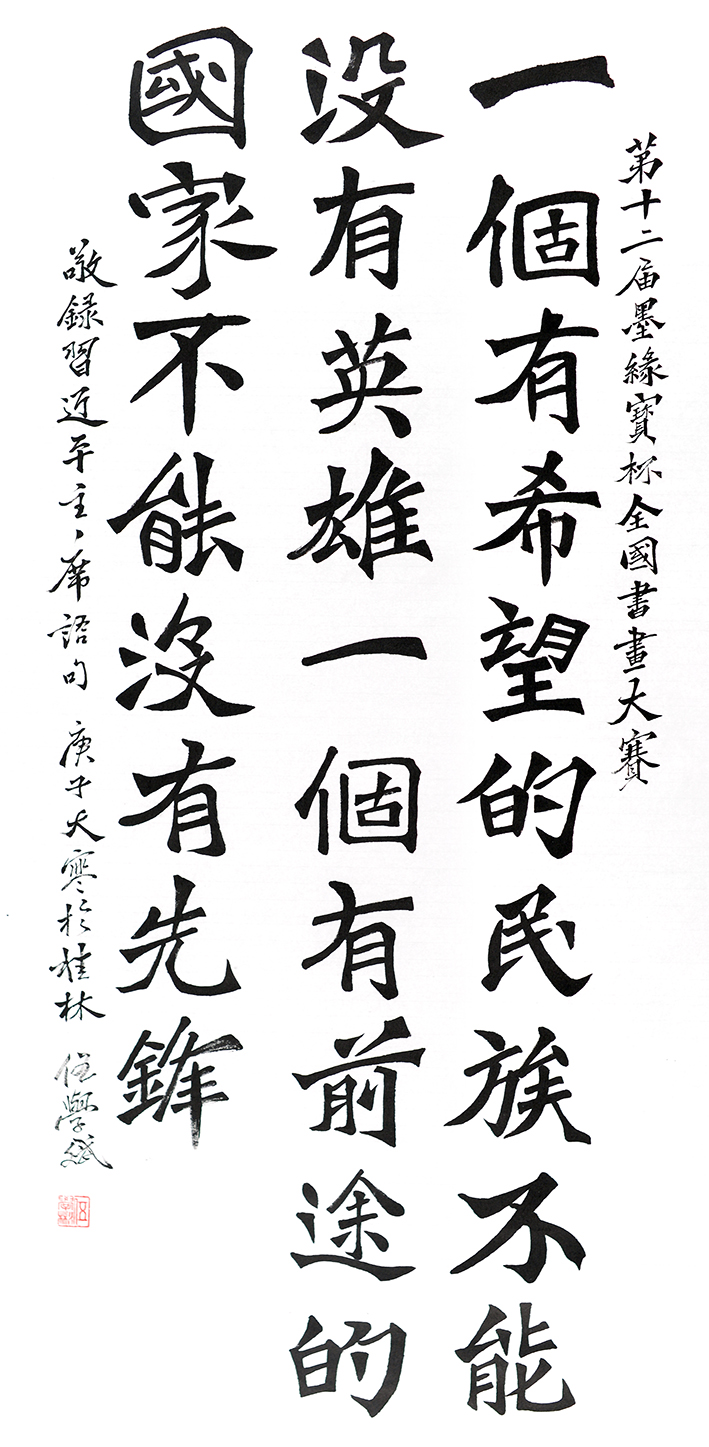 第十二届墨緣寶杯全國書畫大賽
一個有希望的民族不能
没有英雄一個有前途的
國家不能没有先鋒
敬録習近平主席語句 庚子大寒於桂林 任學